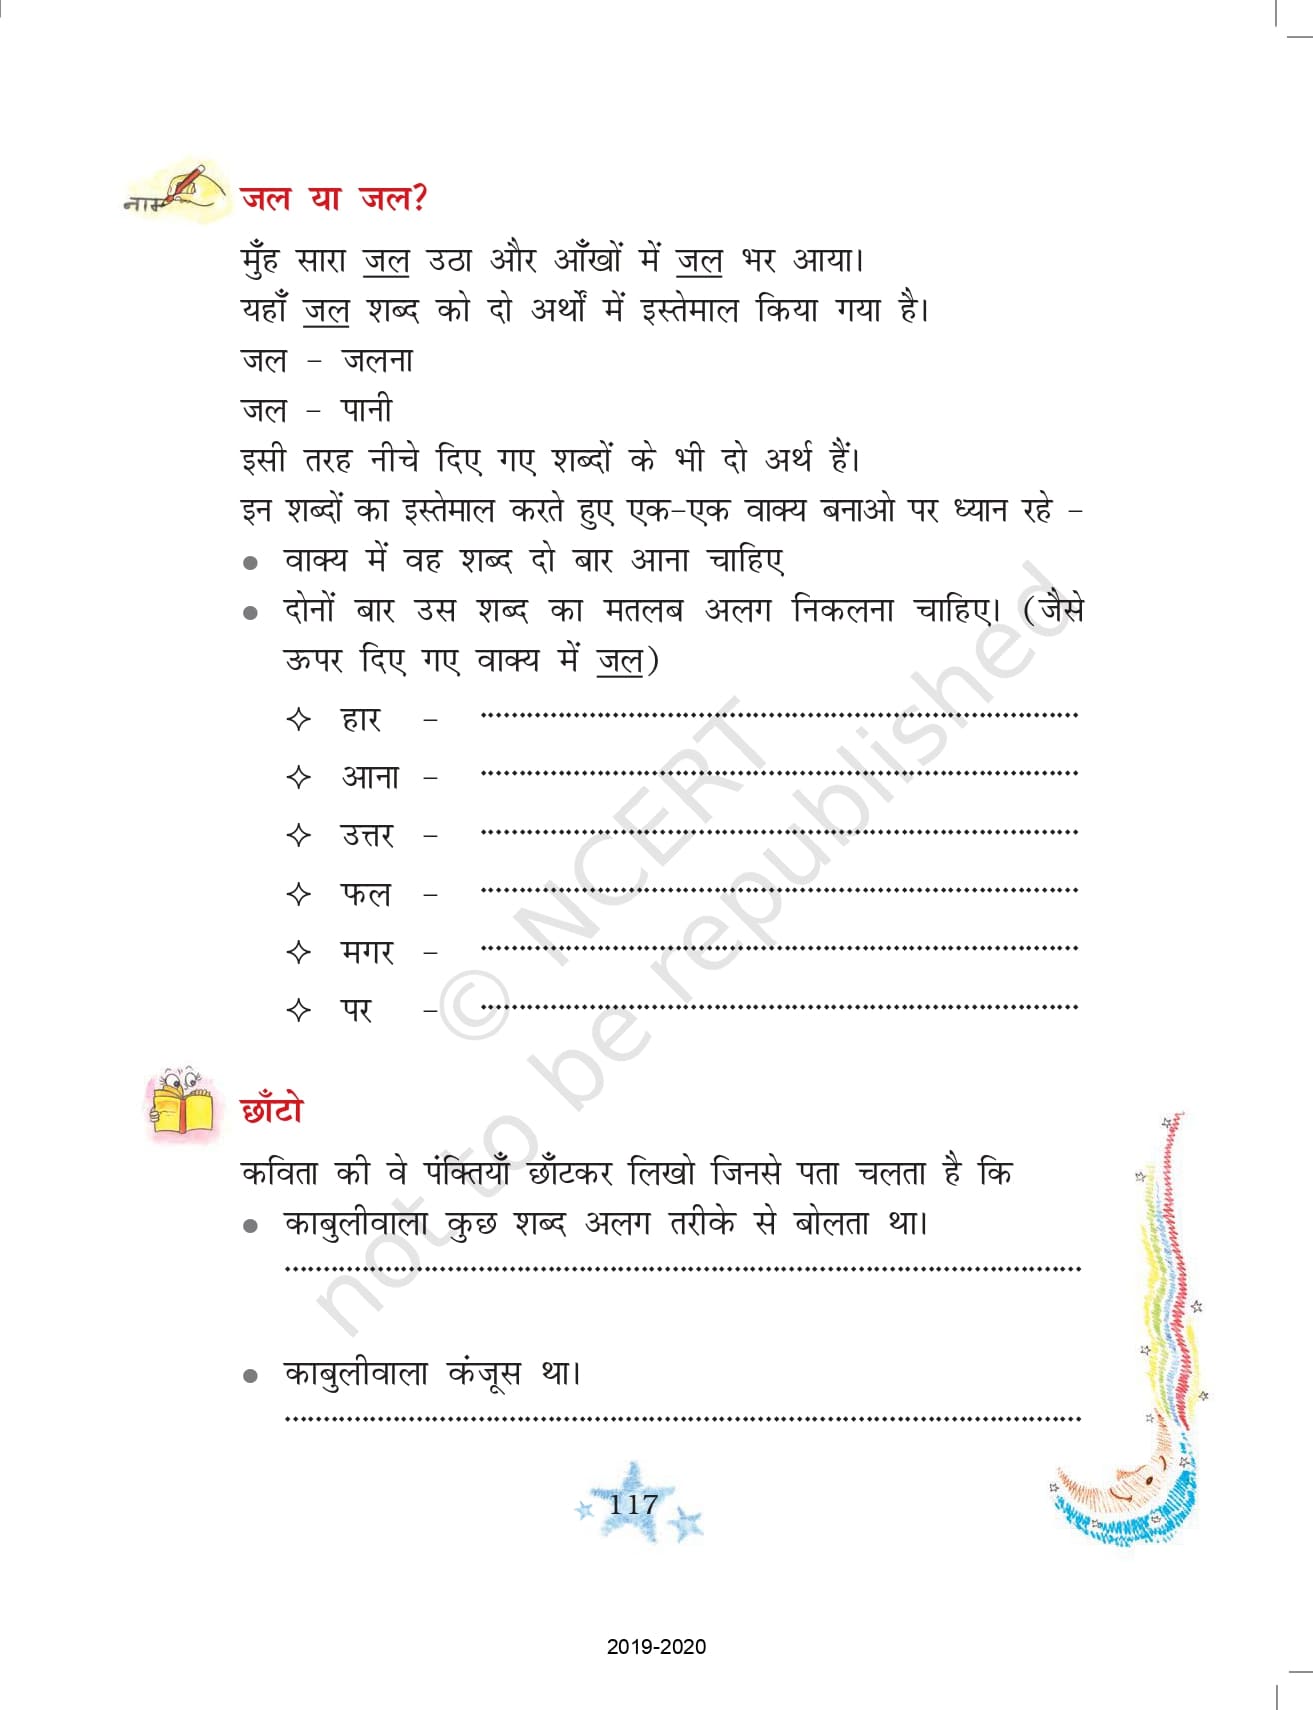 नाम
जल या जल?
मुँह सारा जल उठा और आँखों में जल भर आया।
यहाँ जल शब्द को दो अर्थों में इस्तेमाल किया गया है।
जल – जलना
जल – पानी
इसी तरह नीचे दिए गए शब्दों के भी दो अर्थ हैं।
इन शब्दों का इस्तेमाल करते हुए एक-एक वाक्य बनाओ पर ध्यान रहे –
● वाक्य में वह शब्द दो बार आना चाहिए
● दोनों बार उस शब्द का मतलब अलग निकलना चाहिए। (जैसे
ऊपर दिए गए वाक्य में जल)
✧ हार – ........................................
✧ आना – ........................................
✧ उत्तर – ........................................
✧ फल – ........................................
✧ मगर – ........................................
✧ पर – ........................................
© NCERT
not to be republished
छाँटो
कविता की वे पंक्तियाँ छाँटकर लिखो जिनसे पता चलता है कि
● काबुलीवाला कुछ शब्द अलग तरीके से बोलता था।
........................................
● काबुलीवाला कंजूस था।
........................................
117
2019-2020